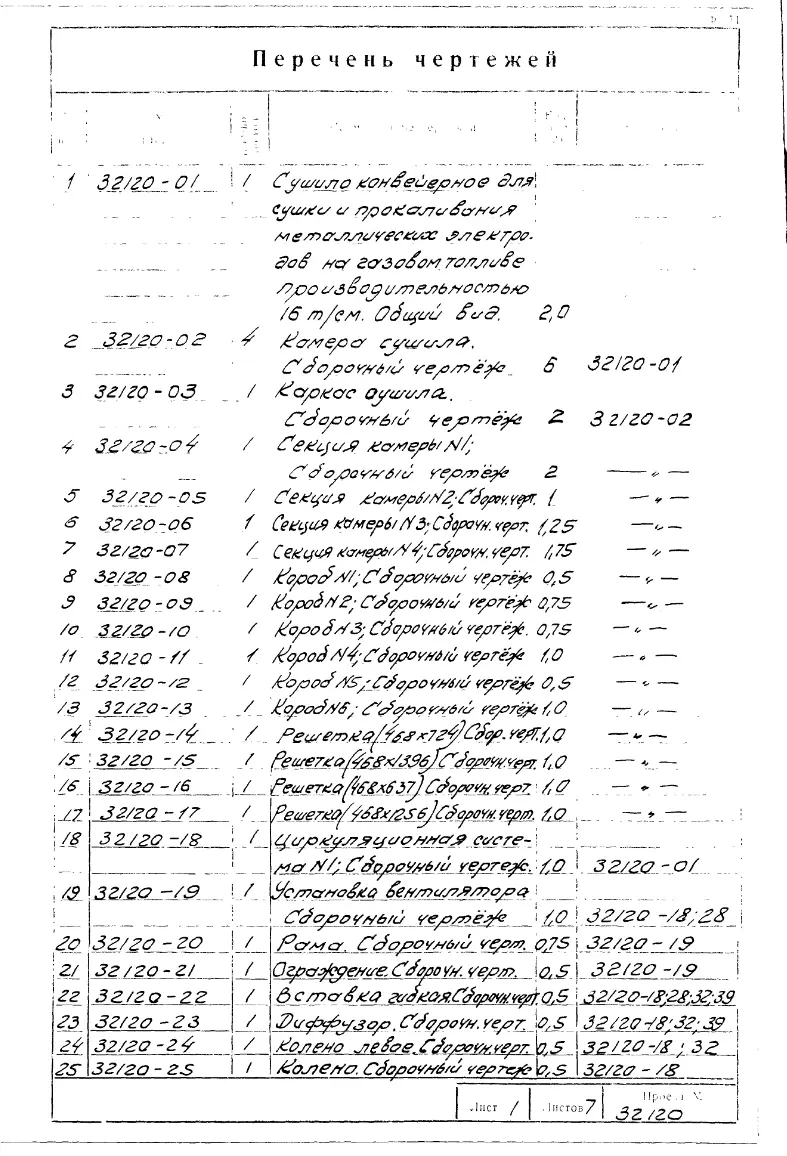 Перечень чертежей
1 32/20-01 1 Сушило конвейерное для
сушки и прокаливания
металлических электро-
дов на газовом топливе
производительностью
16 т/см. Общий вид. 2,0
2 32/20-02 4 Камера сушила.
Сборочный чертёж 6 32/20-01
3 32/20-03 1 Каркас сушила.
Сборочный чертёж 2 32/20-02
4 32/20-04 1 Секция камеры N1;
Сборочный чертёж 2 —〃—
5 32/20-05 1 Секция камеры N2; Сборочн. черт. 1 —〃—
6 32/20-06 1 Секция камеры N3; Сборочн. черт. 1,25 —〃—
7 32/20-07 1 Секция камеры N4; Сборочн. черт. 1,75 —〃—
8 32/20-08 1 Короб N1; Сборочный чертёж 0,5 —〃—
9 32/20-09 1 Короб N2; Сборочный чертёж 0,75 —〃—
10 32/20-10 1 Короб N3; Сборочный чертёж. 0,75 —〃—
11 32/20-11 1 Короб N4; Сборочный чертёж 1,0 —〃—
12 32/20-12 1 Короб N5; Сборочный чертёж 0,5 —〃—
13 32/20-13 1 Короб N6; Сборочный чертёж 1,0 —〃—
14 32/20-14 1 Решетка (468х724) Сбор. черт. 1,0 —〃—
15 32/20-15 1 Решетка (468х1396) Сборочн. черт. 1,0 —〃—
16 32/20-16 1 Решетка (468х637) Сборочн. черт. 1,0 —〃—
17 32/20-17 1 Решетка (468х1256) Сборочн. черт. 1,0 —〃—
18 32/20-18 1 Циркуляционная систе-
ма N1; Сборочный чертеж. 1,0 32/20-01
19 32/20-19 1 Установка вентилятора
Сборочный чертёж 1,0 32/20-18; 28
20 32/20-20 1 Рама. Сборочный черт. 0,75 32/20-19
21 32/20-21 1 Ограждение. Сборочн. черт. 0,5 32/20-19
22 32/20-22 1 Вставка гибкая. Сборочн. черт. 0,5 32/20-18; 28; 32; 39
23 32/20-23 1 Диффузор. Сборочн. черт. 0,5 32/20-18; 32; 39
24 32/20-24 1 Колено левое. Сборочн. черт. 0,5 32/20-18; 32
25 32/20-25 1 Колено. Сборочный чертеж 0,5 32/20-18
Лист 1 Листов 7 32/20